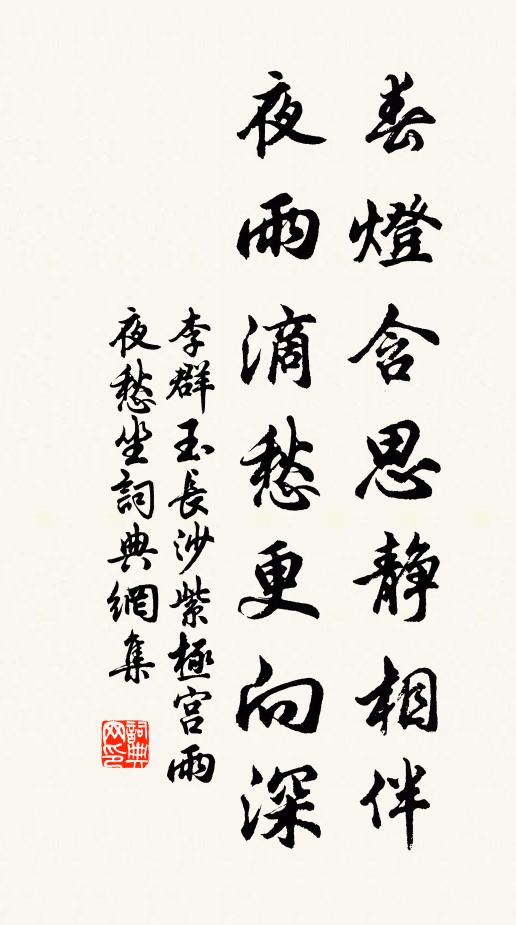 春燈含思靜相伴
夜雨滴愁更向深
李群玉長沙紫極宫雨
夜愁坐詞典網集
詞典
网印